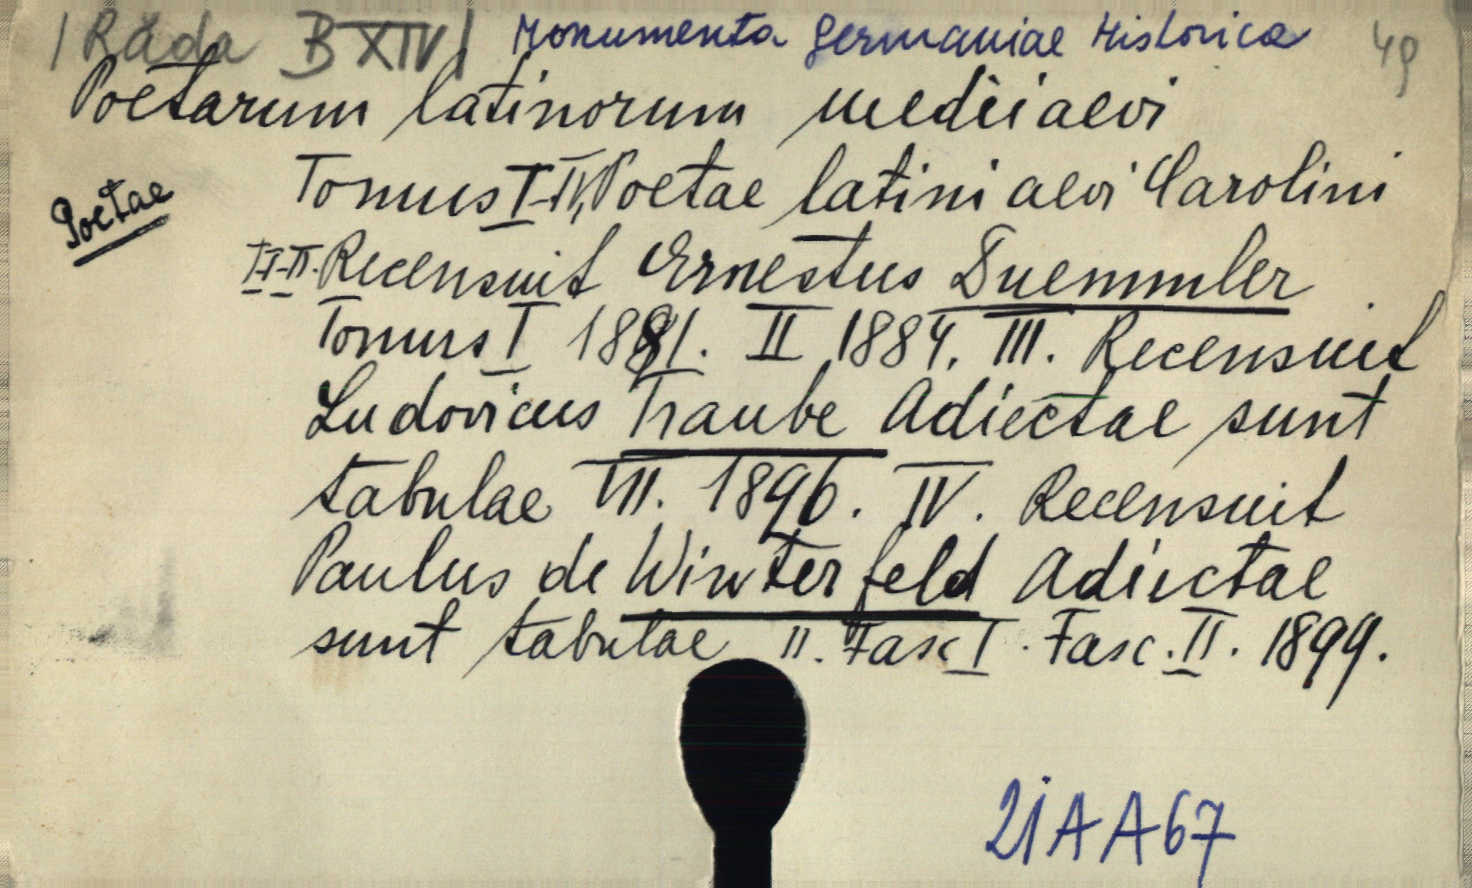 /Rada B XIV/ Monumenta Germaniae Historica 49
Poetarum latinorum medii aevi
Poetae
Tomus I-IV, Poetae latini aevi Carolini
I-II. Recensuit Ernestus Duemmler
Tomus I 1881. II 1884. III. Recensuit
Ludovicus Traube Adiectae sunt
tabulae VII. 1896. IV. Recensuit
Paulus de Winterfeld Adiectae
sunt tabulae II. Fasc I. Fasc. II. 1899.
21AA67